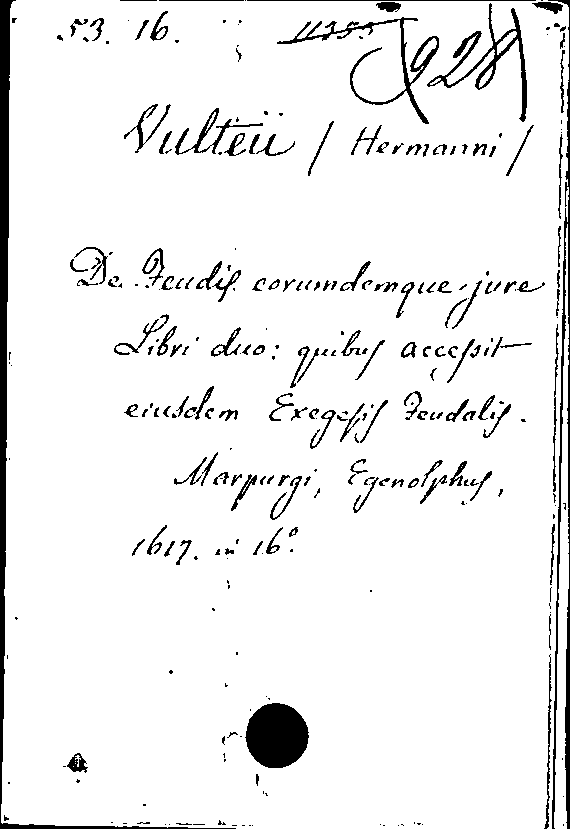 53. 16. 11355
928
Vulteii / Hermanni /
De Feudis eorumdemque jure
Libri duo: quibus accessit
eiusdem Exegesis Feudalis.
Marpurgi, Egenolphus,
1617. in 16º.